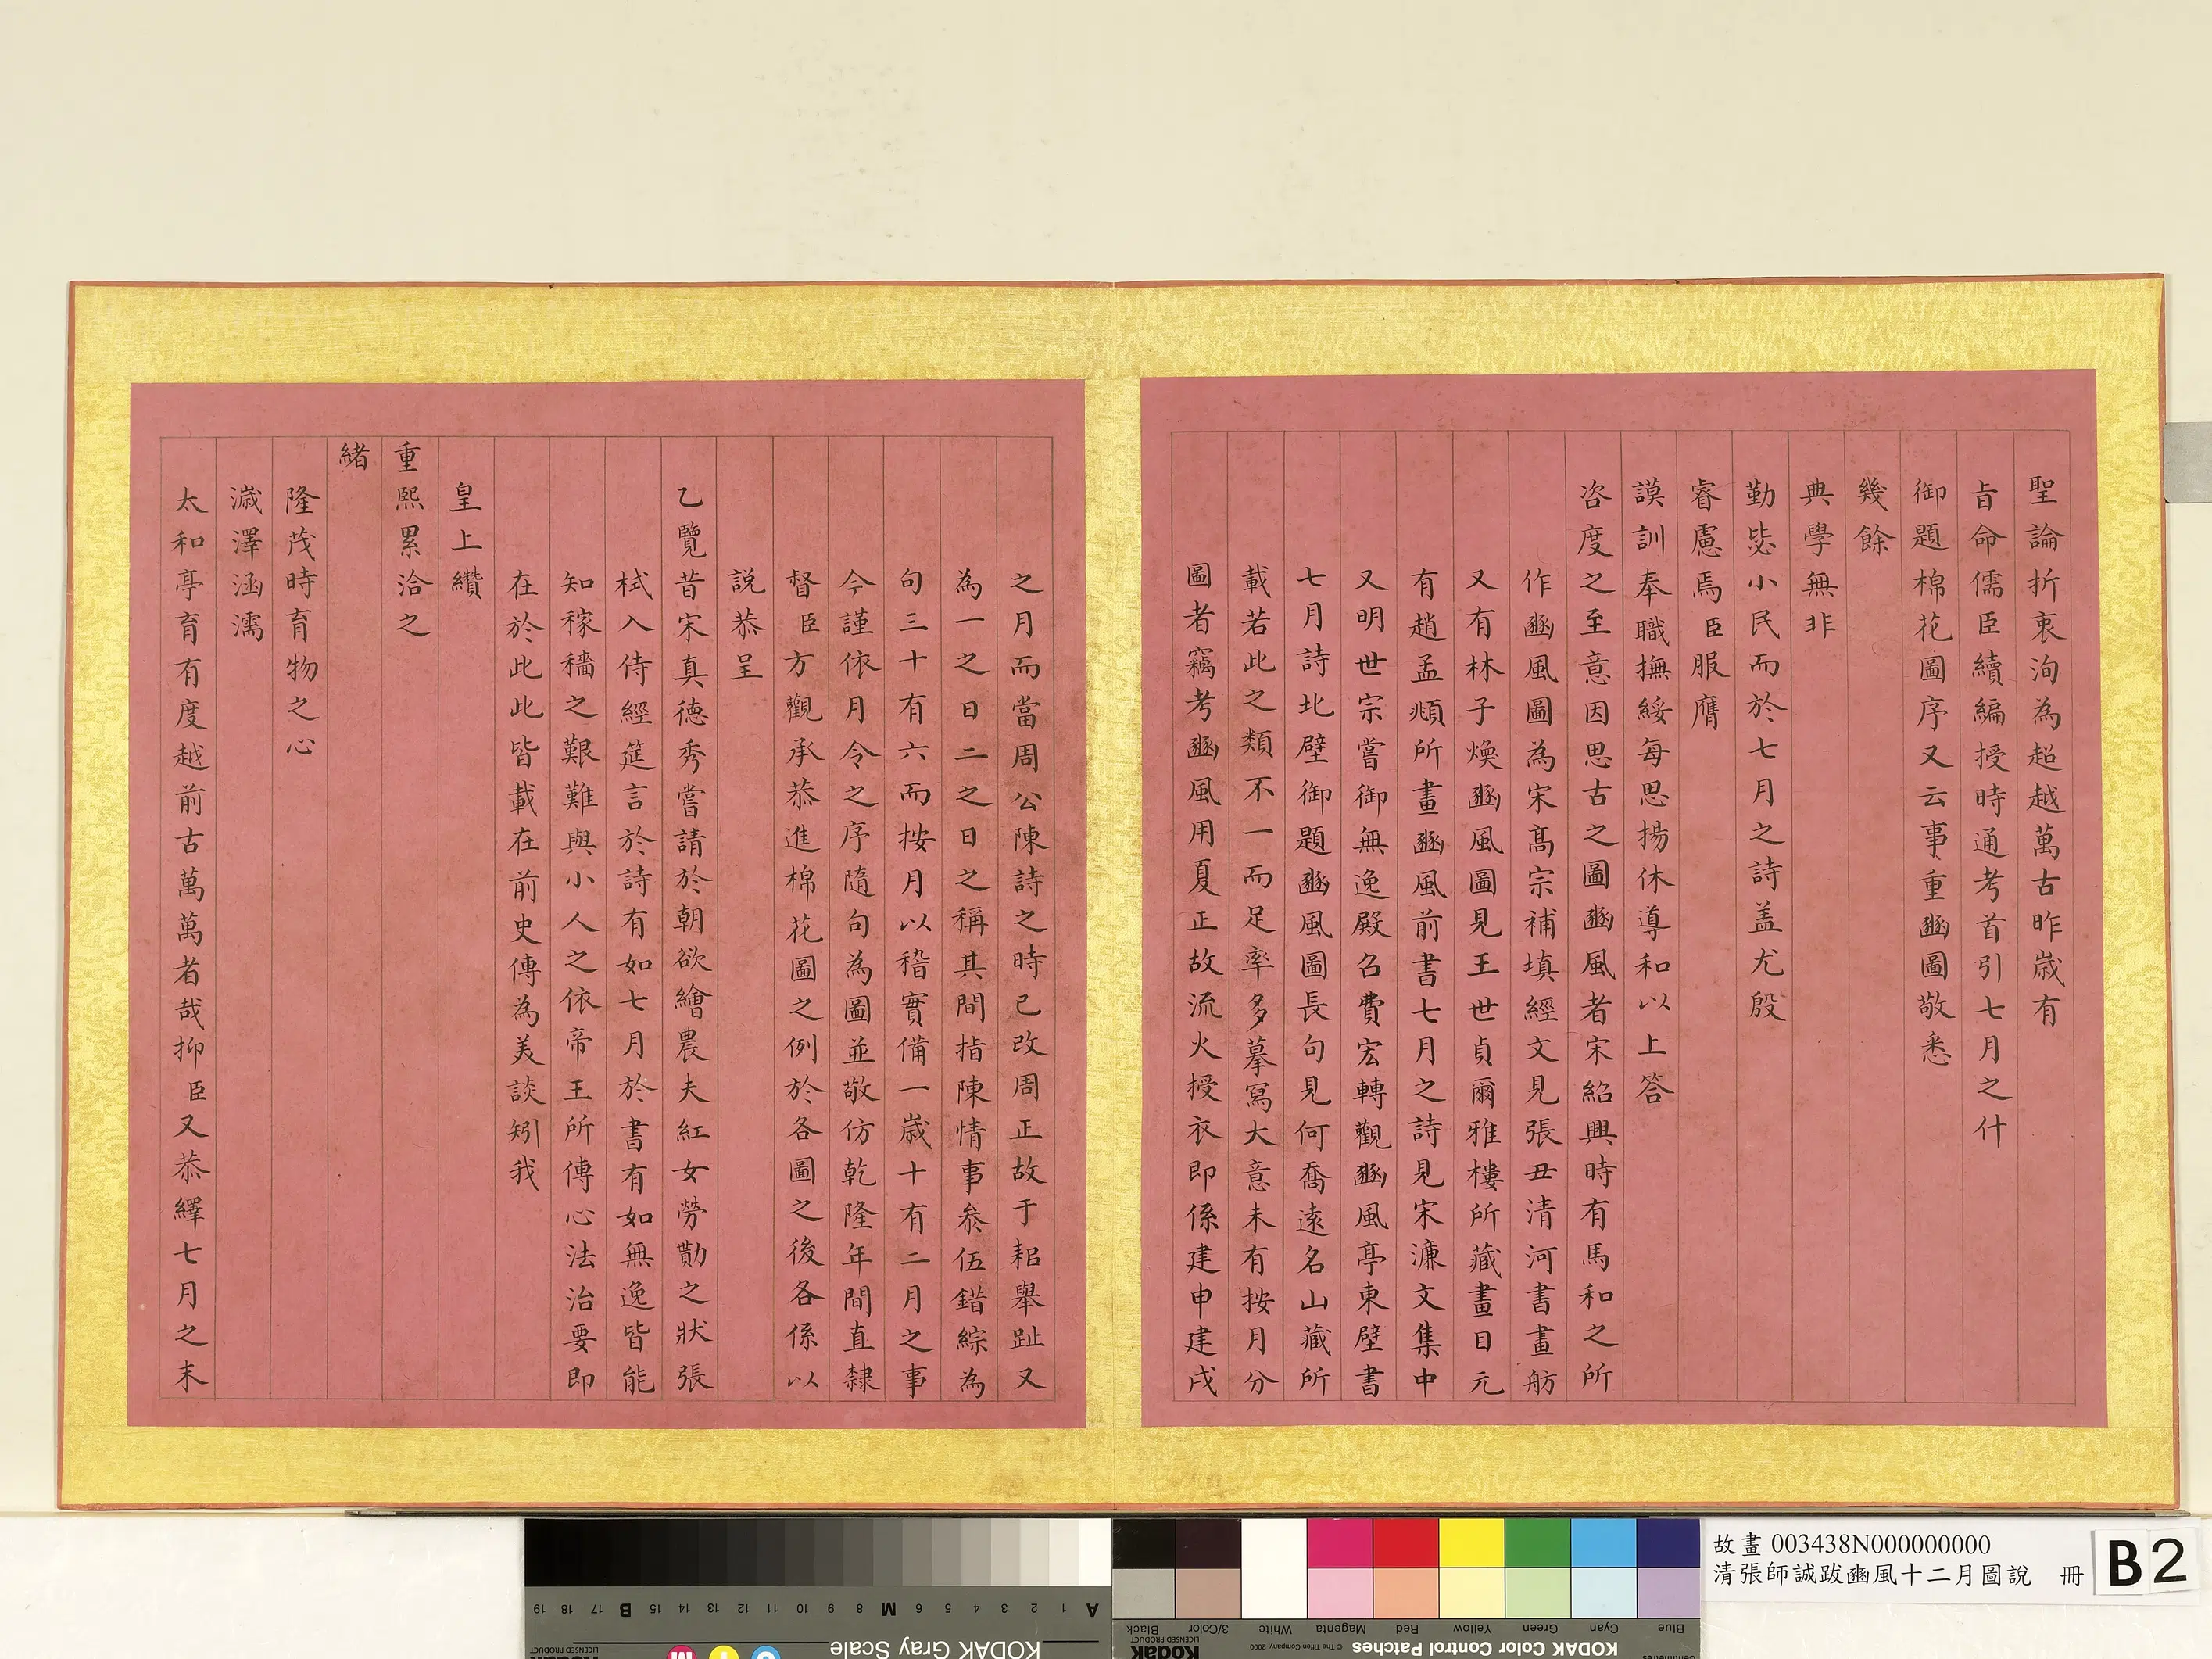 聖論折衷洵為超越萬古昨歲有
旨命儒臣續編授時通考首引七月之什
御題棉花圖序又云事重豳圖敬悉
幾餘
典學無非
勤毖小民而於七月之詩蓋尤殷
睿慮焉臣服膺
謨訓奉職撫綏每思揚休導和以上答
咨度之至意因思古之圖豳風者宋紹興時有馬和之所
作豳風圖為宋高宗補填經文見張丑清河書畫舫
又有林子煥豳風圖見王世貞爾雅樓所藏畫目元
有趙孟頫所畫豳風前書七月之詩見宋濂文集中
又明世宗嘗御無逸殿召費宏轉觀豳風亭東壁書
七月詩北壁御題豳風圖長句見何喬遠名山藏所
載若此之類不一而足率多摹寫大意未有按月分
圖者竊考豳風用夏正故流火授衣即係建申建戌
之月而當周公陳詩之時已改周正故于耜舉趾又
為一之日二之日之稱其間指陳情事叅伍錯綜為
句三十有六而按月以稽實備一歲十有二月之事
今謹依月令之序隨句為圖並敬仿乾隆年間直隸
督臣方觀承恭進棉花圖之例於各圖之後各係以
說恭呈
乙覽昔宋真德秀嘗請於朝欲繪農夫紅女勞勩之狀張
栻入侍經筵言於詩有如七月於書有如無逸皆能
知稼穡之艱難與小人之依帝王所傳心法治要即
在於此此皆載在前史傳為美談矧我
皇上纘
重熙累洽之
緒
隆茂時育物之心
濊澤涵濡
太和亭育有度越前古萬萬者哉抑臣又恭繹七月之末
故畫 003438N000000000
清張師誠跋豳風十二月圖說 冊
B2
KODAK Gray Scale
KODAK Color Control Patches
Kodak
LICENSED PRODUCT
© The Tiffen Company, 2000
Blue Cyan Green Yellow Red Magenta White 3/Color Black
A 1 2 3 4 5 6 M 8 9 10 11 12 13 14 15 B 17 18 19